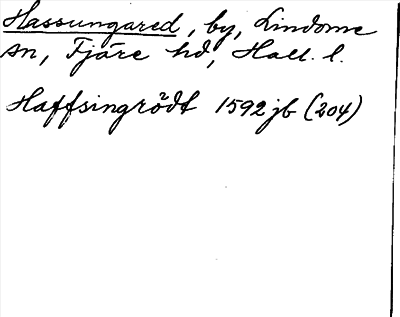 Hassungared, by, Lindome
sn, Fjäre hd, Hall. l.
Haffsingrödt 1592 jb (204)